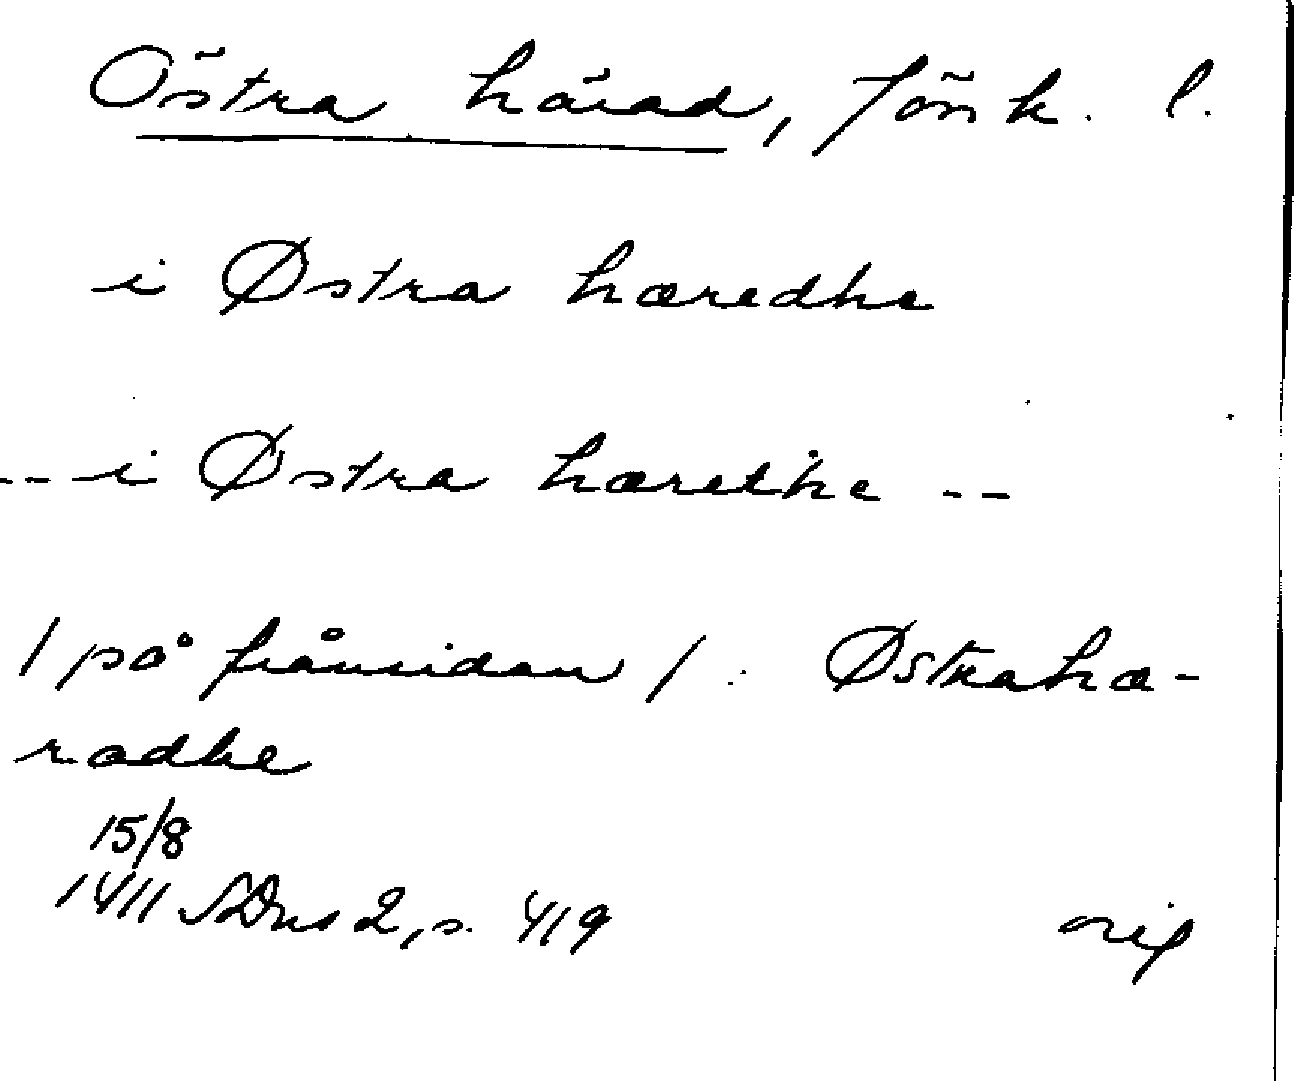 Östra härad, Jönk. l.
i Østra hæredhe
-- i Østra hæredhe --
/ på frånsidan /: Østrahæ-
radhe
15/8
1411 SDns 2, s. 419 orig